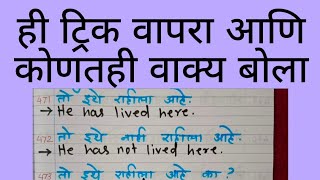 ही ट्रिक वापरा आणि
कोणतही वाक्य बोला
471 तो इथे राहीला आहे.
→ He has lived here.
472 तो इथे नाही राहीला आहे.
→ He has not lived here.
473 तो इथे राहीला आहे का ?